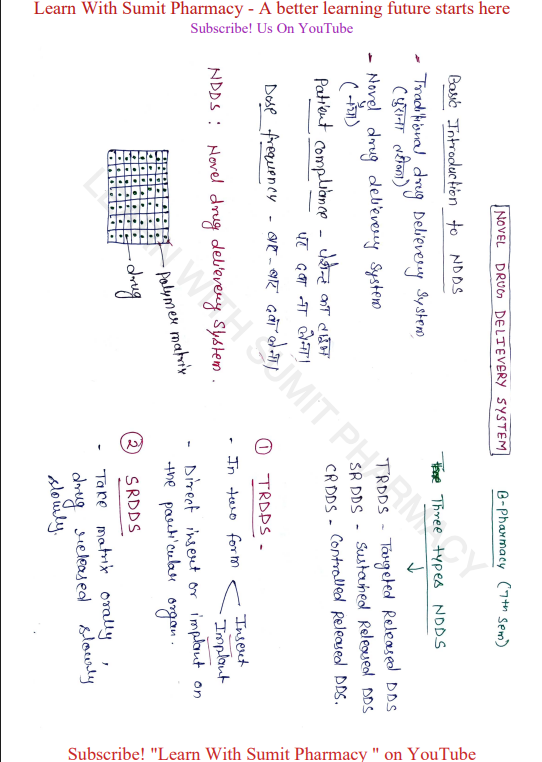 Learn With Sumit Pharmacy - A better learning future starts here
Subscribe! Us On YouTube
NOVEL DRUG DELIEVERY SYSTEM
B-Pharmacy (7th Sem)
Basic Introduction to NDDS
- Traditional drug Delievery System
(पुराना तरीका)
- Novel drug delievery System
(नया)
Patient compliance - पेशेन्ट का टाइम
पर दवा ना लेना।
Dose frequency - बार-बार दवा लेना।
NDDS : Novel drug delievery System.
polymer matrix
drug
Three types NDDS
TRDDS - Targeted Released DDS
SRDDS - Sustained Released DDS
CRDDS - Controlled Released DDS.
① TRDDS -
- In two form
Insert
Implant
- Direct insert or implant on
the particular organ.
② SRDDS
- Take matrix orally,
drug released slowly
slowly.
LEARN WITH SUMIT PHARMACY
Subscribe! "Learn With Sumit Pharmacy " on YouTube